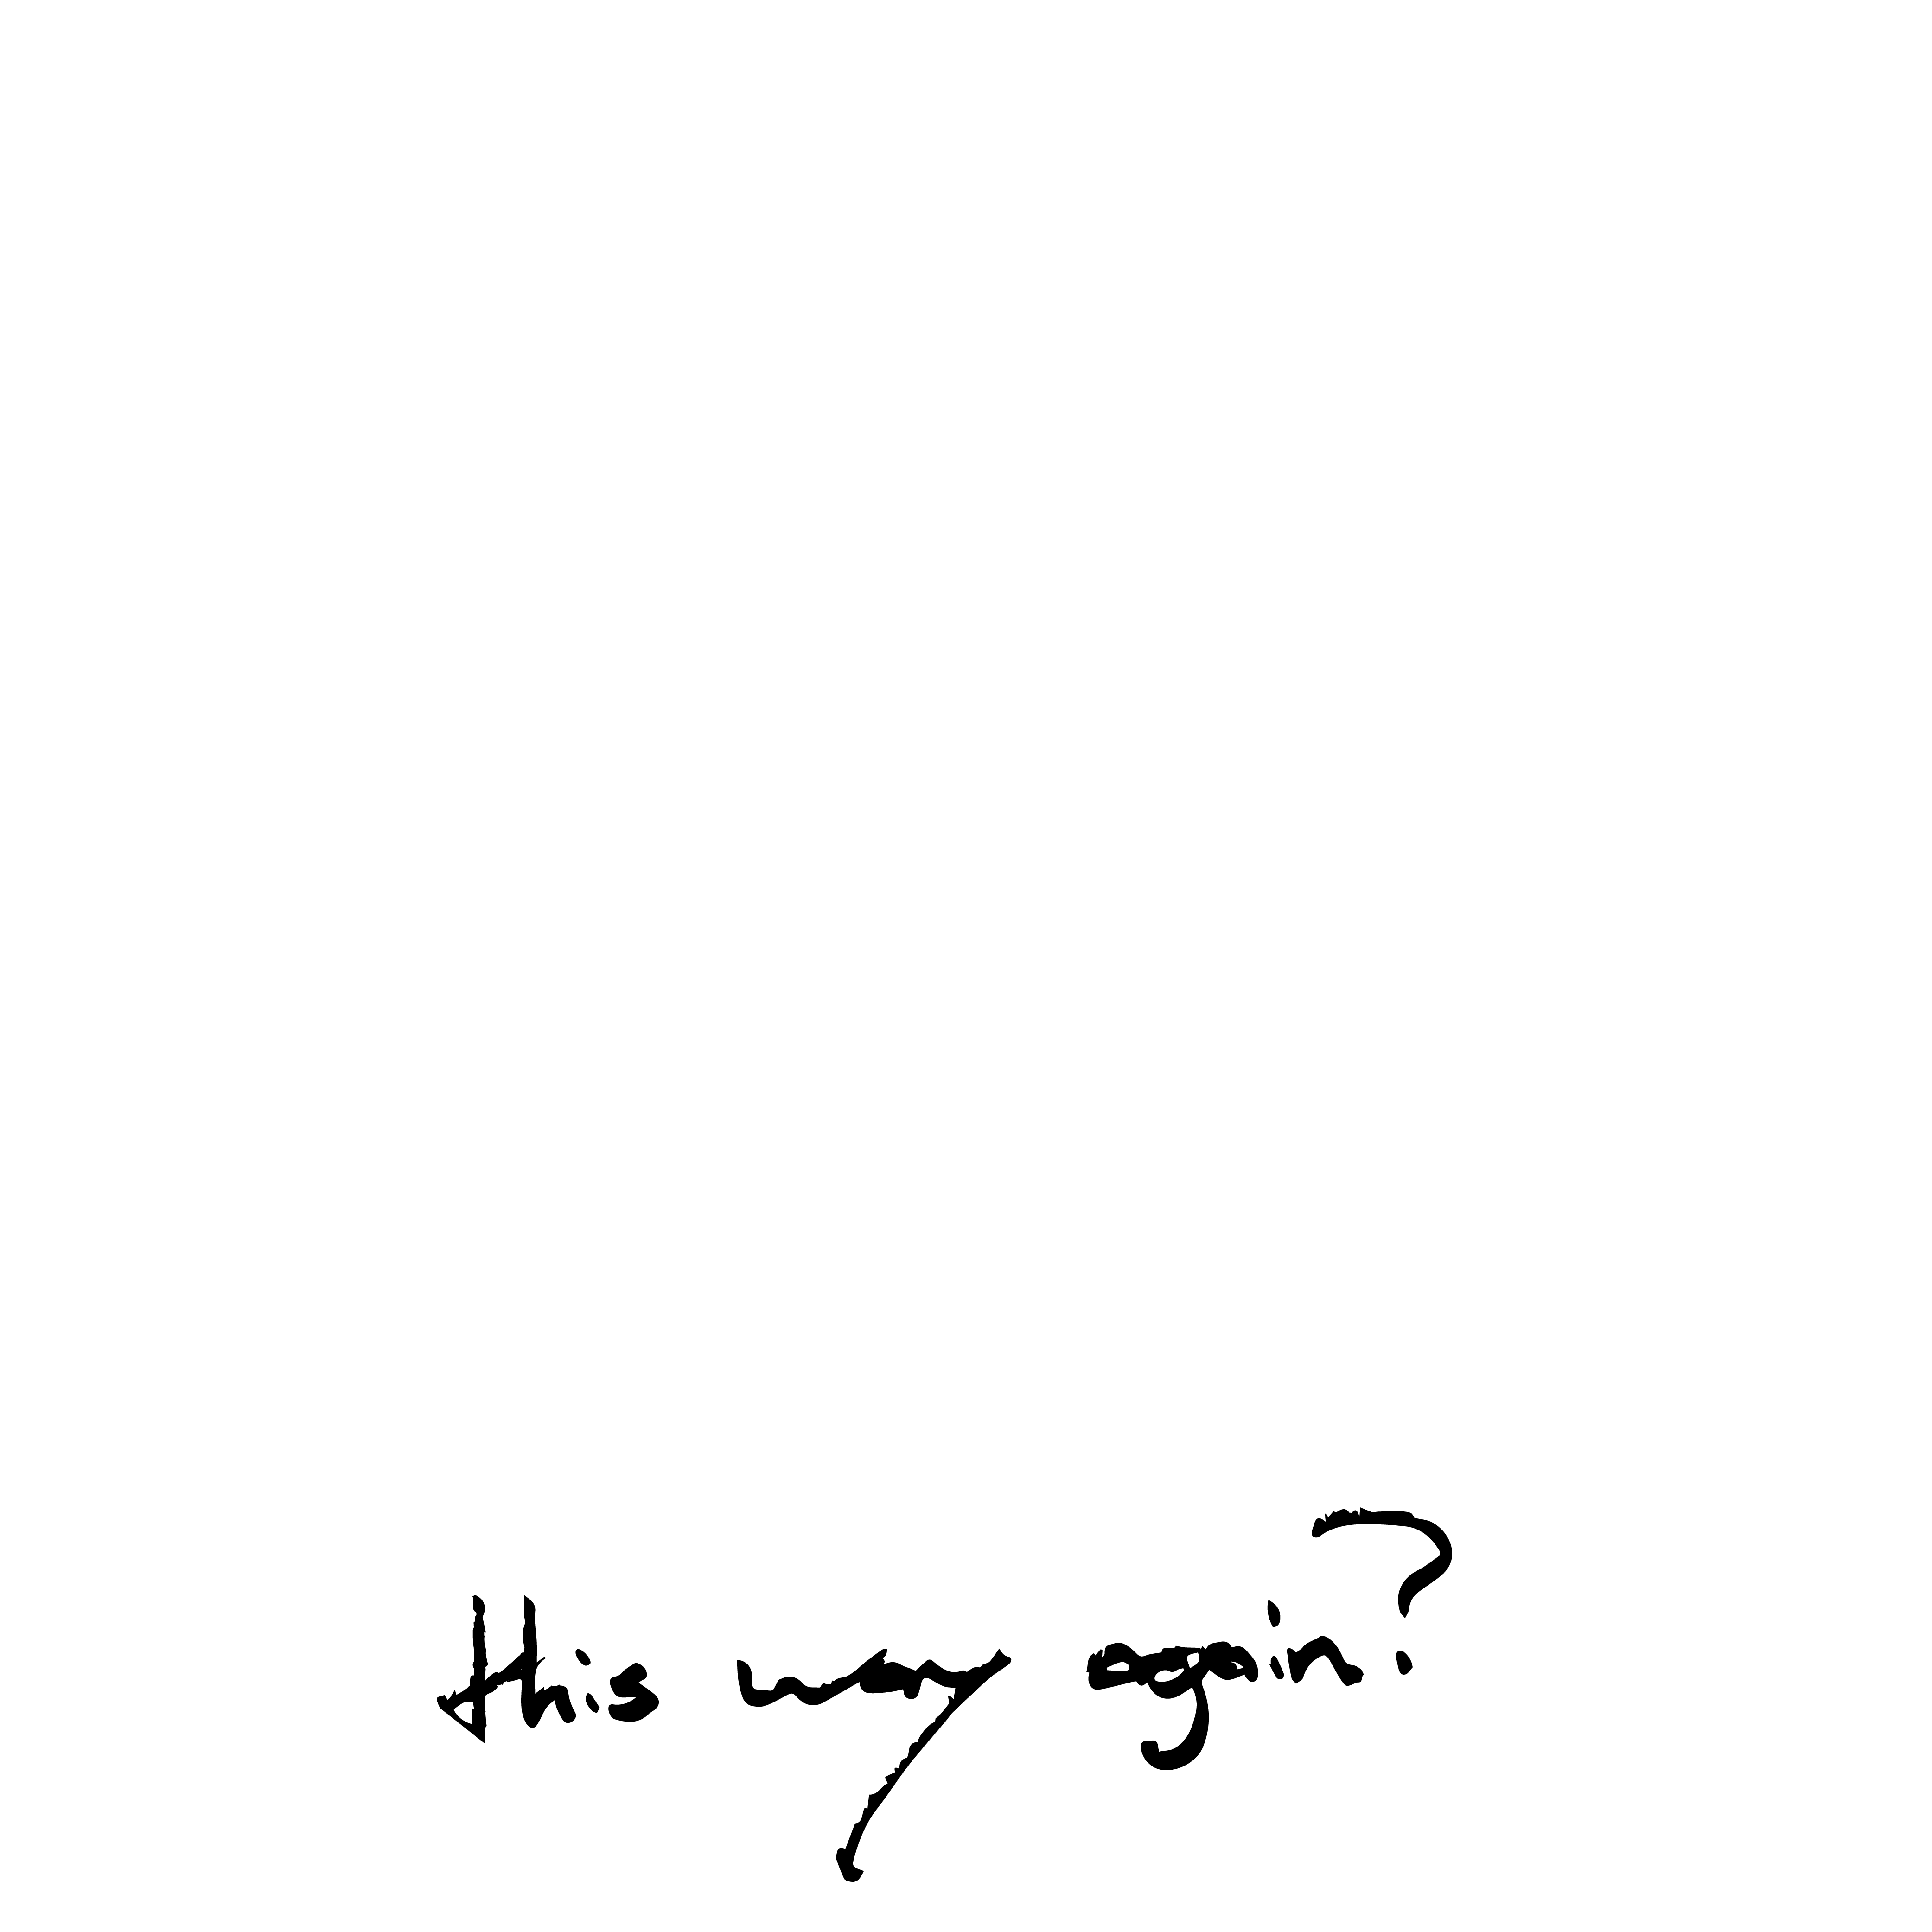 this way again?